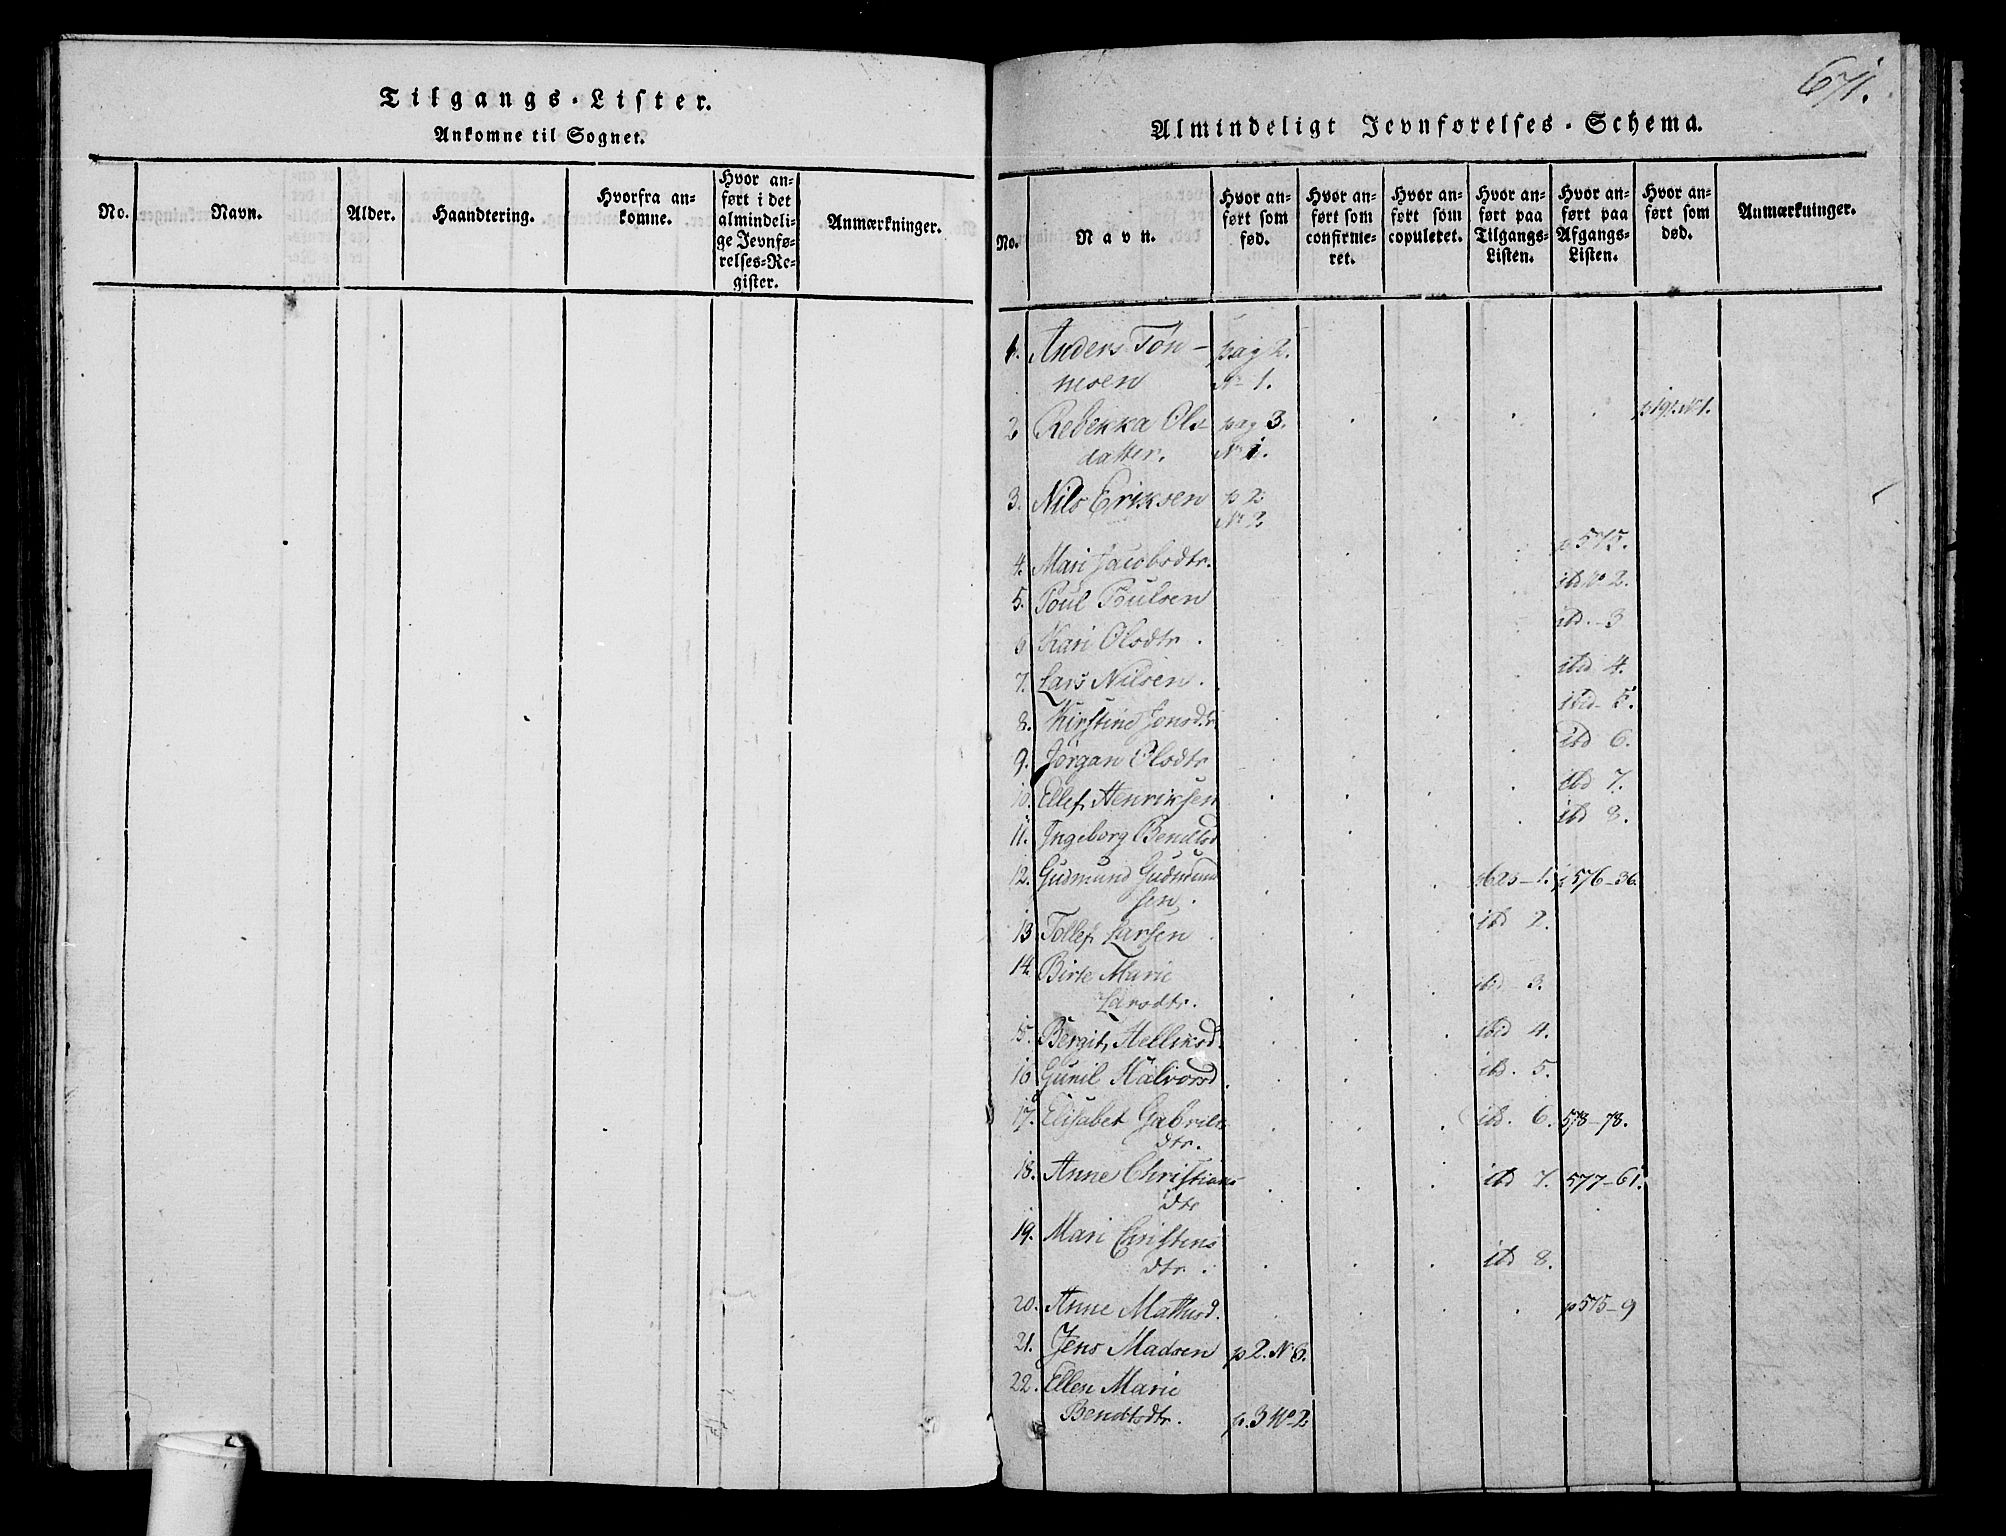 Tilgangs-Lister.
Ankomne til Sognet.
No.
Navn.
Alder.
Haandtering.
Hvorfra an-
komne.
Hvor an-
ført i det
almindeli-
ge Jevnfø-
relses-Re-
gister.
Anmærkninger.
671.
Almindeligt Jevnførelses-Schema.
No.
Navn.
Hvor an-
ført som
fød.
Hvor an-
ført som
confirme-
ret.
Hvor an-
ført som
copuleret.
Hvor an-
ført paa
Tilgangs-
Listen.
Hvor an-
ført paa
Afgangs-
Listen.
Hvor an-
ført som
død.
Anmærkninger.
1. Anders Tön- pag 2.
nesen No 1.
2 Rebekka Ols- pag 3. p 191. No 1.
datter. No 1.
3. Nils Eriksen p 2.
No 2
4. Mari Jacobsdtr. p 575.
5. Poul Poulsen ibd No 2.
6 Kari Olsdtr. ibd. - 3
7. Lars Nilsen. ibd 4.
8. Kirstine Jonsdtr ibid - 5.
9. Jörgan Olsdtr ibd 6.
10. Ellef Henriksen ibd 7.
11. Ingeborg Bendtsd ibd 8.
12. Gudmund Gudmund 625-1. p 576-36.
sen.
13 Tollef Larsen ibd 2.
14. Birte Marie
Larsdtr. ibd 3.
15. Bergit Helliksd. ibd 4.
16 Gunil Halvorsd. ibd. 5.
17. Elisabet Gabriels ibd. 6. 578-78.
dtr.
18. Anne Christians ibd 7. 577-61.
dtr
19. Mari Christens
dtr. ibd 8.
20. Anne Mathisd. p 575-9
21. Jens Madsen p 2. No 3.
22. Ellen Marie
Bendtsdtr. p. 3 No 2